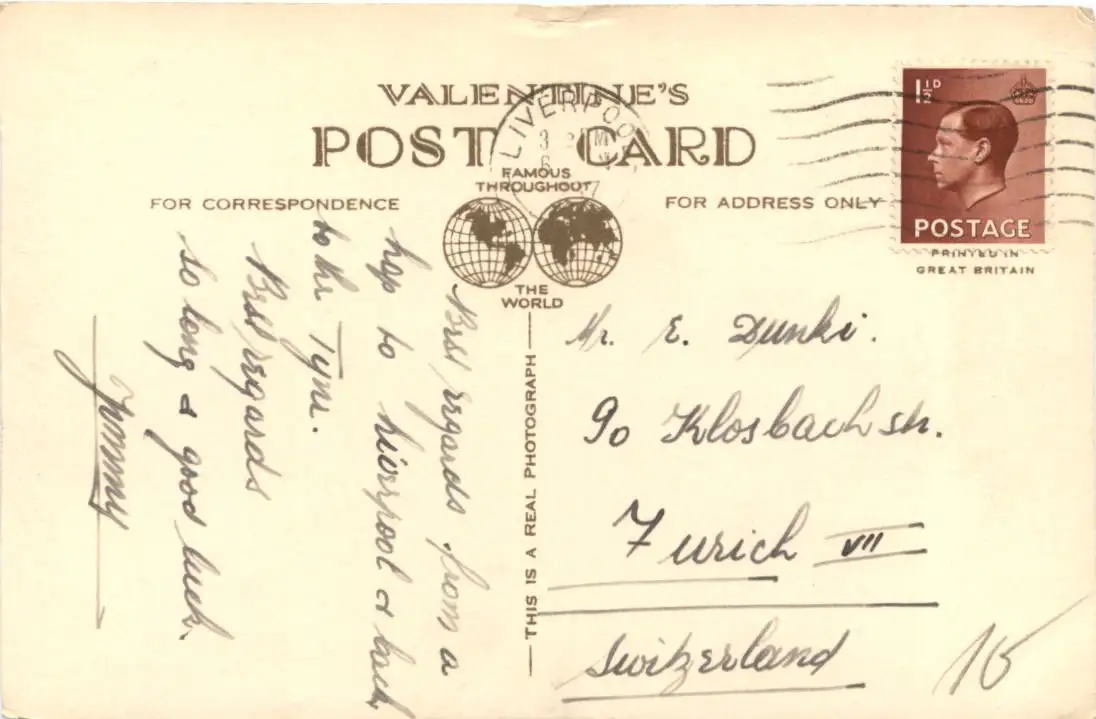 VALENTINE'S
POST CARD
FAMOUS
THROUGHOUT
THE
WORLD
FOR CORRESPONDENCE
FOR ADDRESS ONLY
LIVERPOOL
1½D
POSTAGE
PRINTED IN
GREAT BRITAIN
THIS IS A REAL PHOTOGRAPH
Best regards from a
hop to Liverpool & back
to the Tyne.
Best regards
so long & good luck.
Mr. E. Dunki.
90 Klosbachstr.
Zurich VII
Switzerland
10